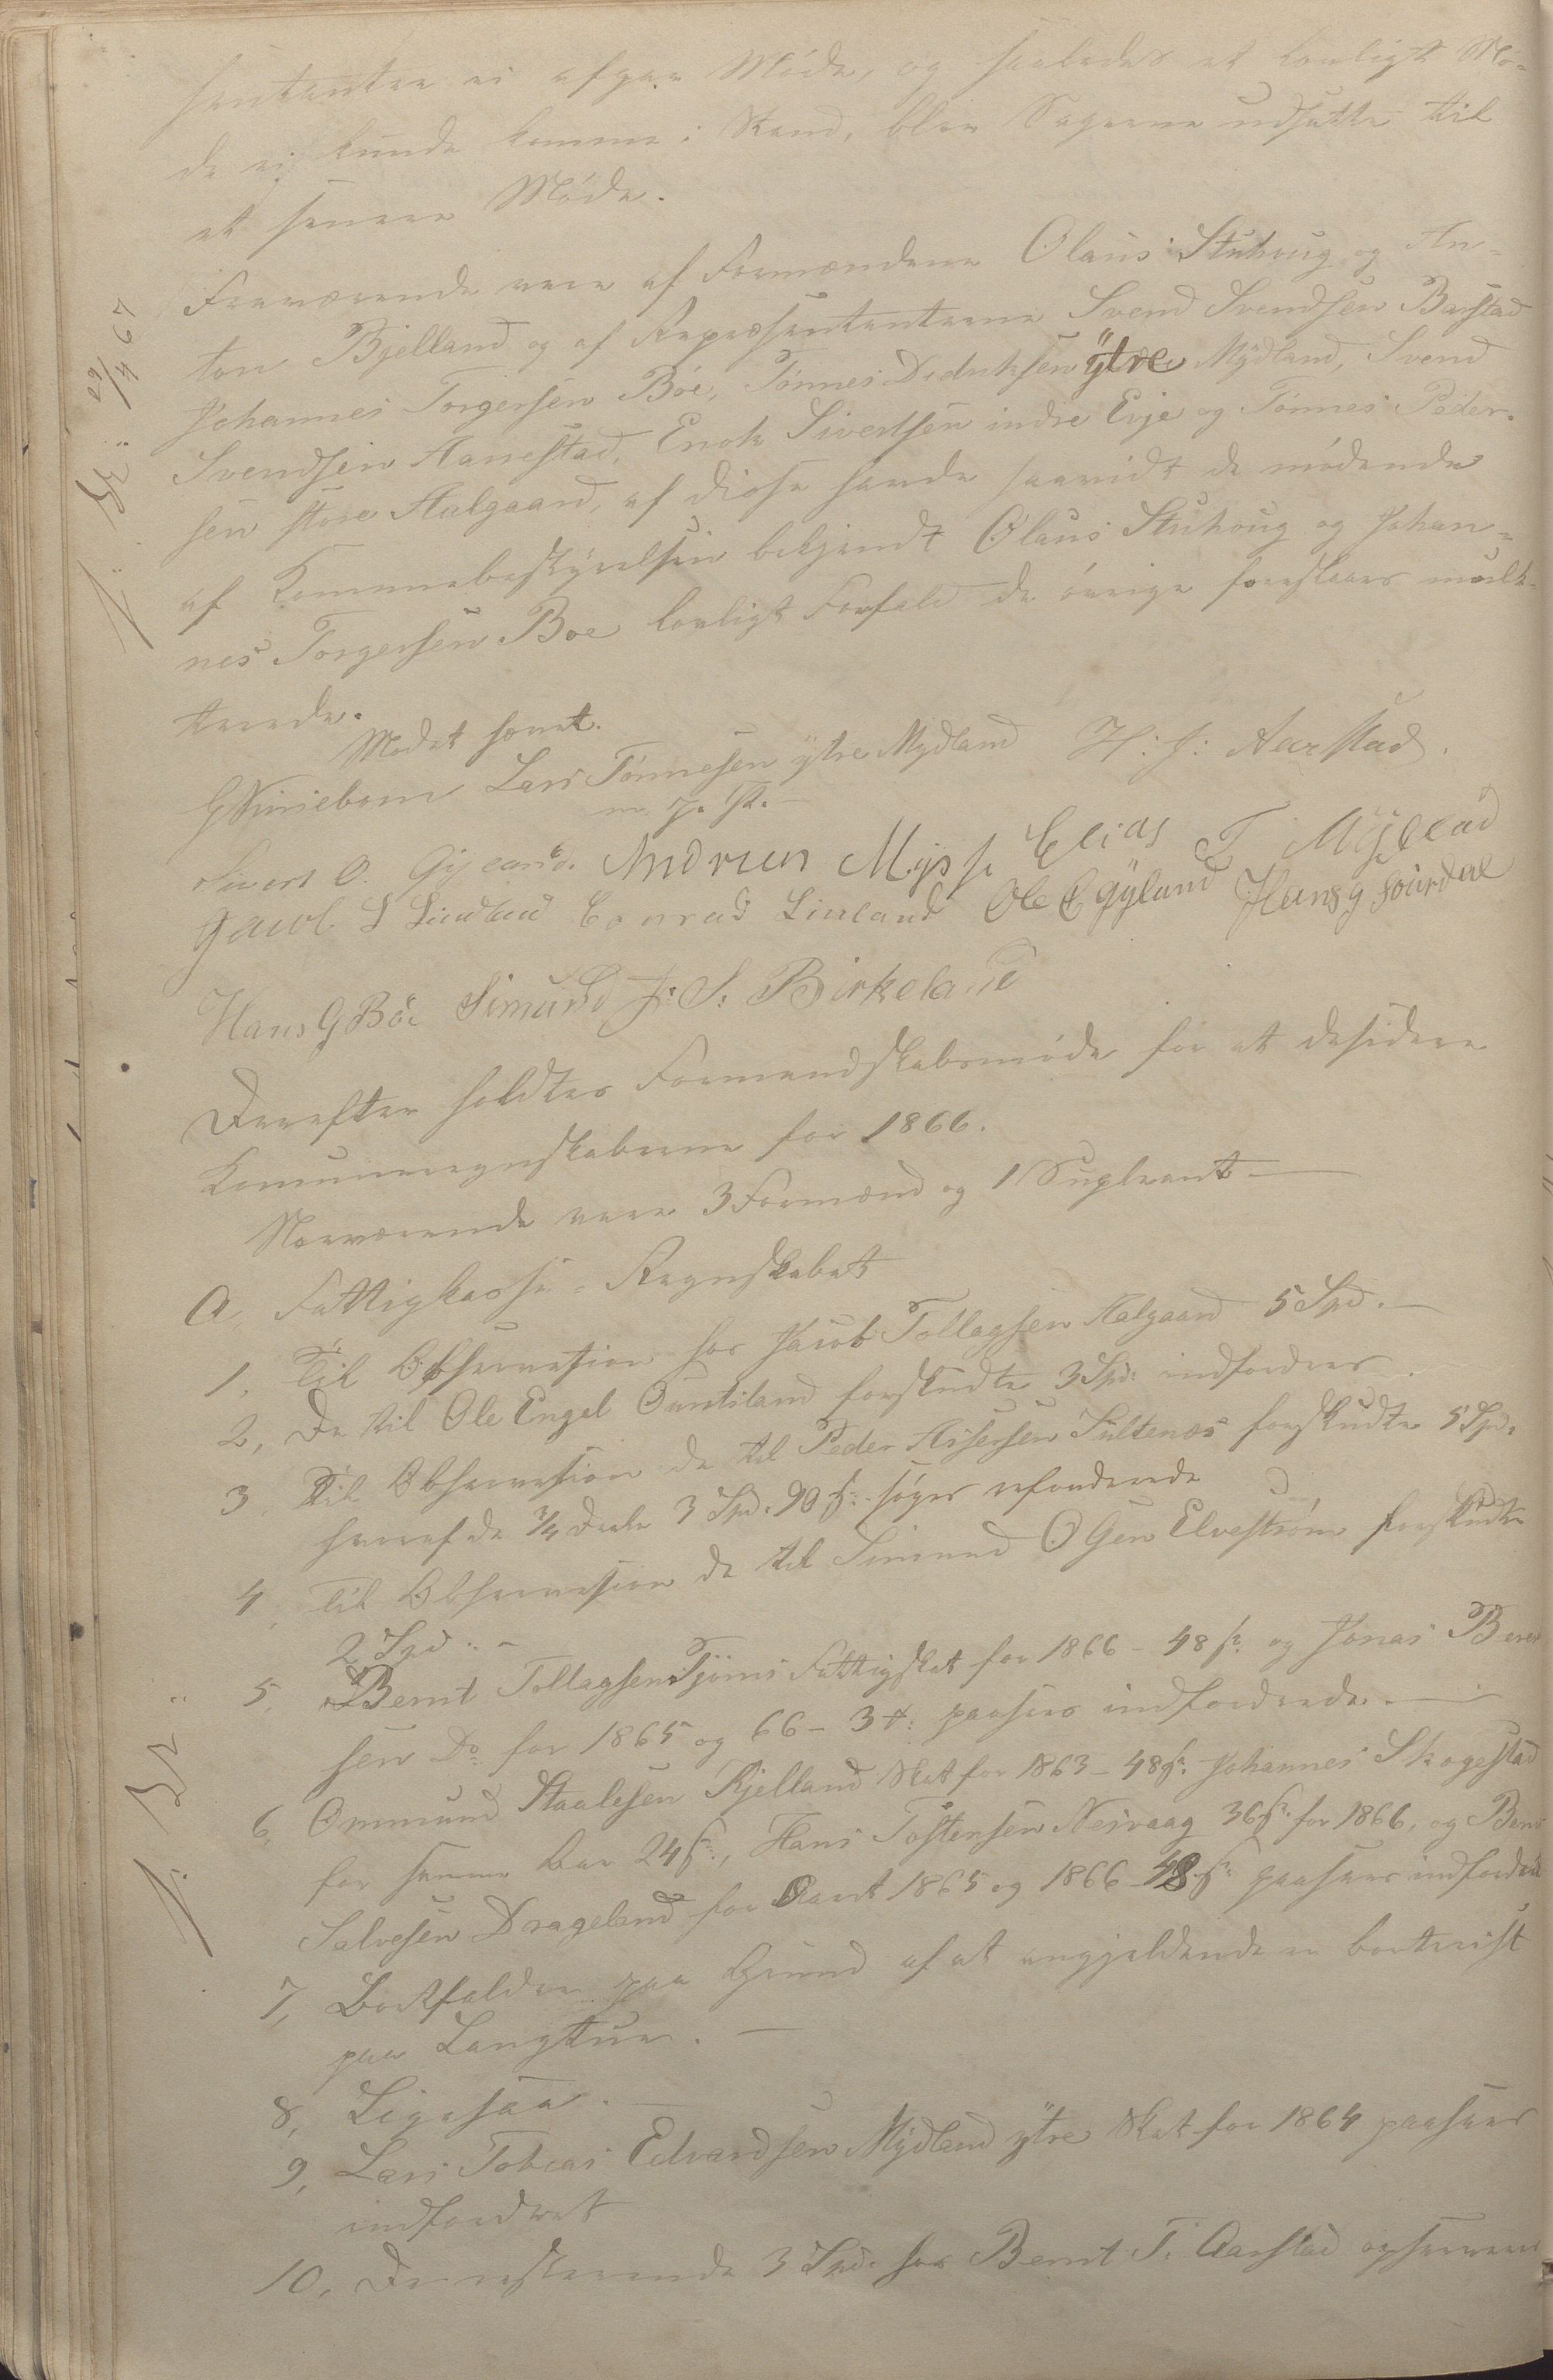 sentanter ei afgav Møde, og saaledes et lovligt Mø-
de ei kunde komme i Stand, blev Sagerne udsatte til
et senere Møde.
Fraværende vare af Formændene Olaus Stuhoug og An-
ton Bjelland og af Repræsentanterne Svend Svendsen Barstad
Johannes Torgersen Böe, Tönnes Dideriksen ÿtre Mÿdland, Svend
Svendsen Aanestad, Enok Sivertsen indre Evje og Tönnes Peder-
sen store Aalgaard, af disse havde saavidt de mødende
af Kommunebestÿrelsen bekjendt Olaus Stuhoug og Johan-
nes Torgersen Boe lovligt Forfald de øvrige foreslaaes mulk-
terede.
Mødet hævet.
29/4 67
Lars Tönnesen ÿtre Mydland H: J: Aarstad.
m. p. P.
Sivert O. Gÿland. Andreas Mÿsse Elias T Mÿdland
Jacob S Lindland Conrad Linland Ole E Gÿland Hans G
Hans G Böe Simund J: S: Birkeland
Derefter holdtes Formandskabsmøde for at desidere
Kommuneregnskaberne for 1866.
Nærværende vare 3 Formænd og 1 Supleant
A, Fattigkasse-Regnskabet
1, Til Observation hos Jacob Tollagsen Aalgaard 5 Spd.
2, De til Ole Engel forskudte 3 Spd: indfordres.
3, Til Observation de til Peder Assersen Sultenes forskudte 5 Spd.
heraf de 3/4 Dele 3 Spd. 90 s: søges refunderede
4, Til Observation de til Simund Elvestrøm forskudte
2 Spd.
5, Bernt Tollagsen Tjörns Fattigskat for 1866 – 48 s: og Jonas
sen Do for 1865 og 66 – 3 paasees indfordrede.
6, Ommund Staalesen Kjelland Skat for 1863 – 48 s: Johannes Skogestad
for samme Aar 24 s:, Hans Tostensen Nesvaag 36 s: for 1866, og
Salvesen Drageland for Aaret 1865 og 1866 48 s: paasees indfordrede
7, Bortfalder paa Grund af at angjældende er bortreist
paa Langtur.
8, Ligesaa.
9, Lars Tobias Edvardsen Mÿdland ÿtre Skat for 1864 paasees
indfordret
10, De resterende 3 Spd. hos Bernt T. Aarstad